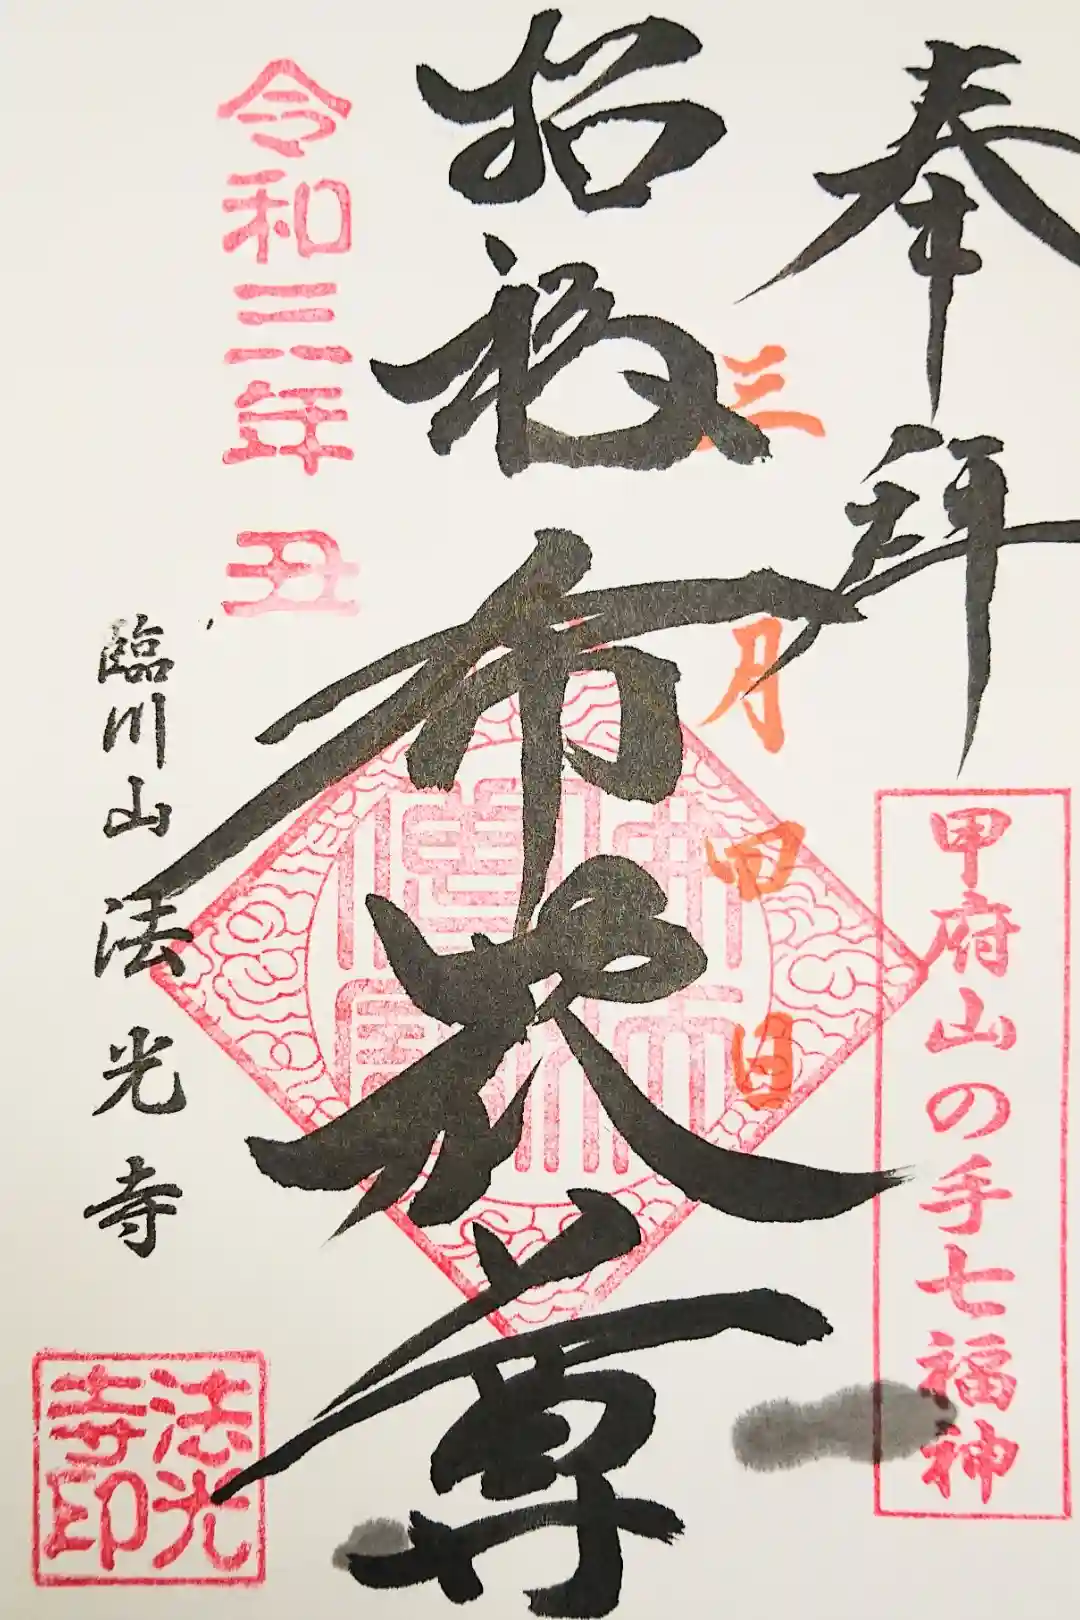 奉拝
甲府山の手七福神
三月四日
招福
布袋尊
令和三年
丑
臨川山
法光寺
法光
寺印